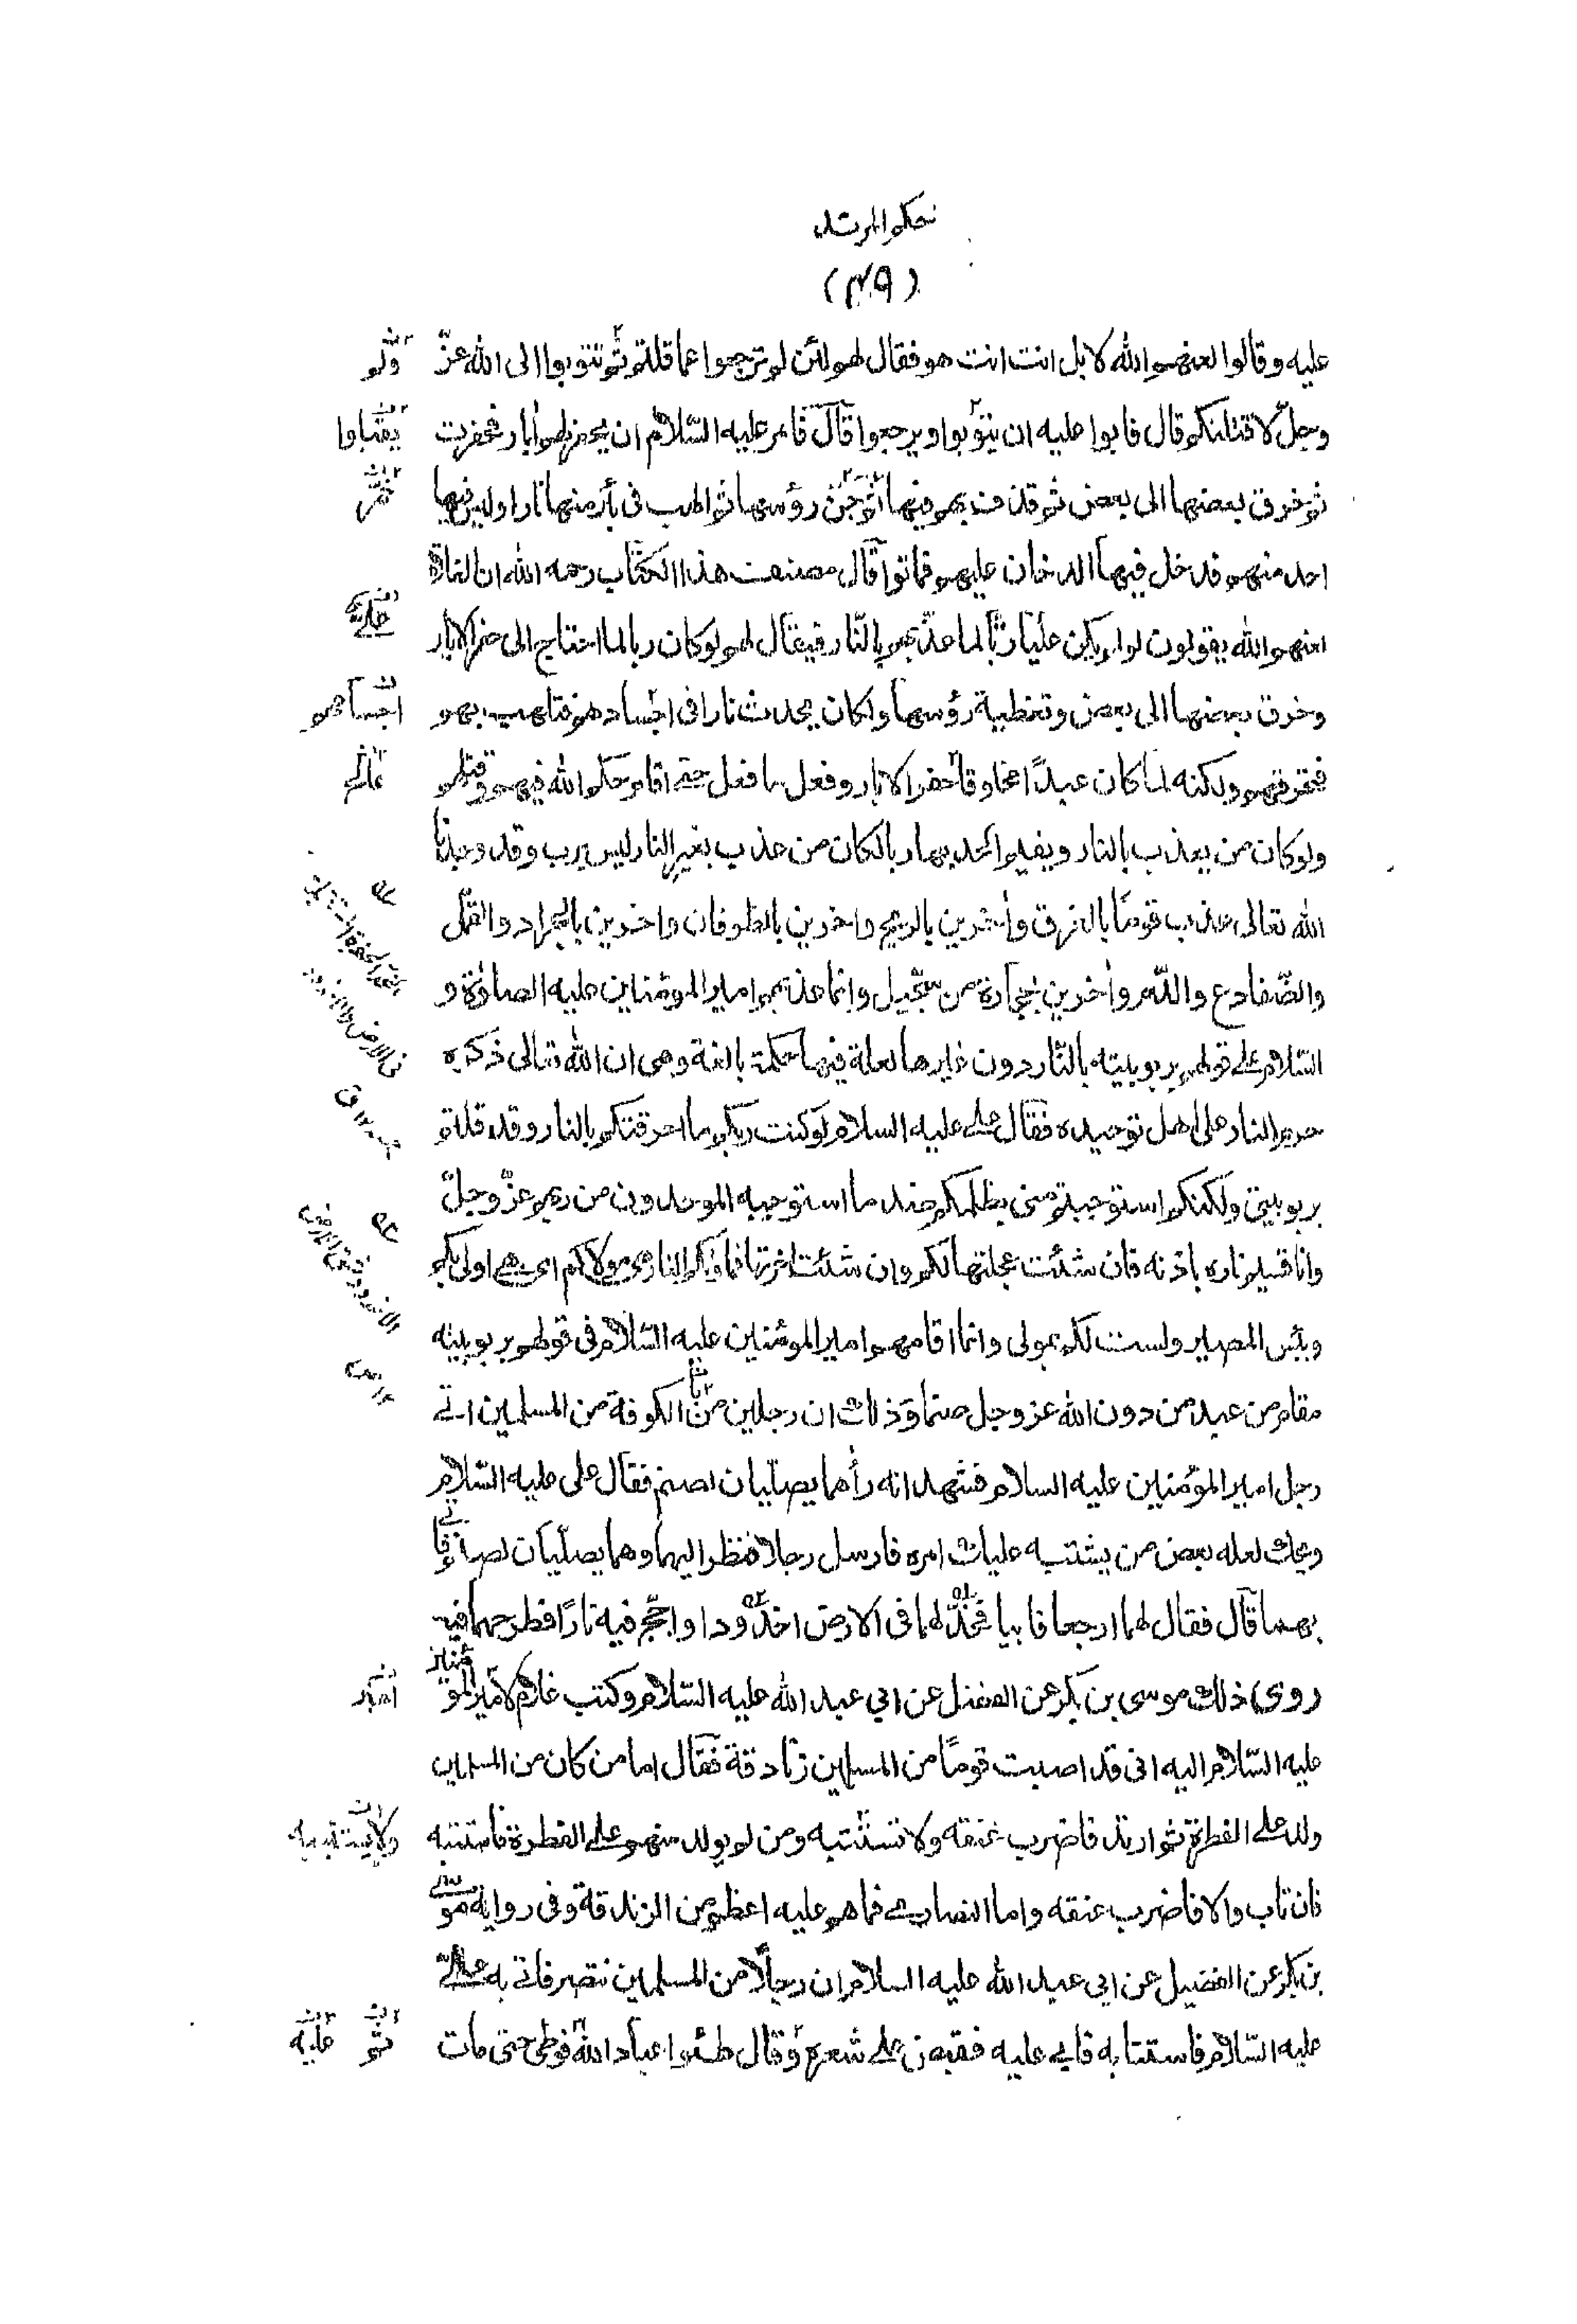 حكم المرتد
(٤٩)
عليه وقالوا لعنهم الله لا بل انت انت هو فقال لهم لئن لم ترجعوا عما قلتم ثم تتوبوا الى الله عزّ
وجلّ لاقتلنكم قال فابوا عليه ان يتوبوا ويرجعوا قال فامر عليه السّلام ان يحفر لهم اٰبار فحفرت
ثم خرق بعضها الى بعض ثم قذف بهم فيها ثم جنّ رؤسها ثم الهب فى بئر منها نارا وليس فيها
احد منهم فدخل فيها الدخان عليهم فماتوا قال مصنف هذا الكتاب رحمه الله ان الغلاة
لعنهم الله يقولون لو لم يكن علىّ ربّا لما عذّبهم بالنّار فيقال لهم لو كان ربا لما احتاج الى حفر الابار
وخرق بعضها الى بعض وتغطية رؤسها ولكان يحدث نارا فى اجسادهم فتلهب بهم
فتحرقهم ولكنه لما كان عبدًا مخلوقا حفر الابار وفعل ما فعل حتى اقام حكم الله فيهم وقتلهم
ولو كان من يعذب بالنار ويقيم الحد بها ربا لكان من عذب بغير النار ليس برب وقد وجدنا
الله تعالى عذب قومًا بالغرق واٰخرين بالريح واخرين بالطوفان واخرين بالجراد والقمّل
والضّفادع والدّم واٰخرين بحجارة من سجّيل وانما عذبهم امير المؤمنين عليه الصلوٰة و
السّلام على قولهم بربوبيته بالنّار دون غيرها لعلة فيها حكمة بالغة وهى ان الله تعالى ذكره
حرم النار على اهل توحيده فقال علي عليه السلام لو كنت ربكم ما احرقتكم بالنار وقد قلتم
بربوبيتى ولكنكم استوجبتم منى بظلمكم ضد ما استوجبه الموحدون من ربهم عزّ وجلّ
وانا قسيم ناره باذنه فان شئت عجلتها لكم وان شئت اخرتها فماوٰيكم النار هى مولاكم اى هى اولى بكم
وبئس المصير ولست لكم بمولى وانما اقامهم امير المؤمنين عليه السّلام فى قولهم بربوبيته
مقام من عبد من دون الله عز وجل صنما وذلك ان رجلين من الكوفة من المسلمين اتى
رجل امير المؤمنين عليه السلام فشهد انه رأهما يصلّيان لصنم فقال على عليه السّلام
ويحك لعله بعض من يشتبه عليك امره فارسل رجلا فنظر اليهما وهما يصلّيان لصنم فاتى
بهما قال فقال لهما ارجعا فابيا فخدّ لهما فى الارض اخدّودا واجّج فيه نارًا فطرحهما فيه
روى ذلك موسى بن بكر عن الفضل عن ابي عبد الله عليه السّلام وكتب غلام لامير المؤمنين
عليه السّلام اليه انى قد اصبت قومًا من المسلمين زنادقة فقال اما من كان من المسلمين
ولد على الفطرة ثم ارتد فاضرب عنقه ولا تستتبه ومن لم يولد منهم على الفطرة فاستتبه
فان تاب والا فاضرب عنقه واما النصارى فما هم عليه اعظم من الزندقة وفى رواية موسى
بن بكر عن الفضيل عن ابي عبد الله عليه السلام ان رجلًا من المسلمين تنصر فاتى به علىّ
عليه السّلام فاستتابه فابى عليه فقبض على شعره وقال طئوا عباد الله فوطى حتى مات
ولم
يقبلوا
اجسامهم
ولا يستتيبه
ثم عليه